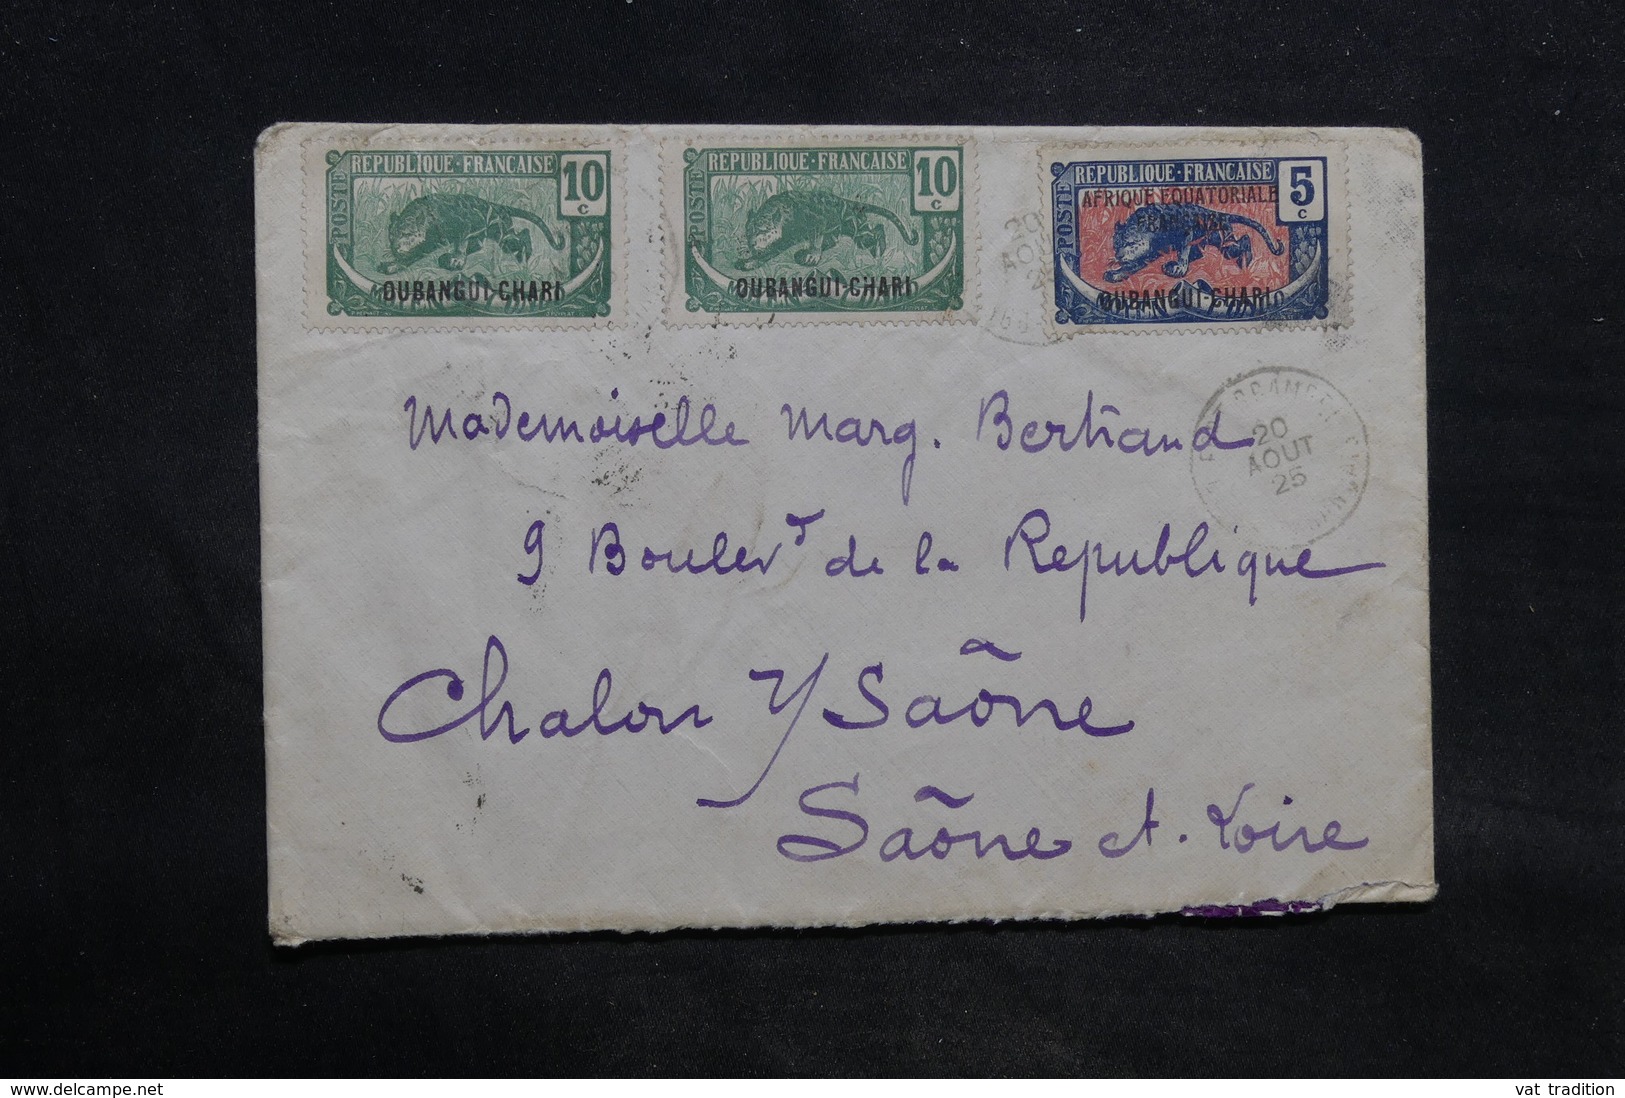 REPUBLIQUE·FRANÇAISE
10
c
POSTE
OUBANGUI-CHARI
REPUBLIQUE·FRANÇAISE
10
c
POSTE
OUBANGUI-CHARI
REPUBLIQUE·FRANÇAISE
5
c
POSTE
AFRIQUE EQUATORIALE
OUBANGUI-CHARI
20
AOUT
25
Mademoiselle Marg. Bertrand
9 Boulevd de la Republique
Chalon s/ Saône
Saône et. Loire
delcampe.net
vat tradition